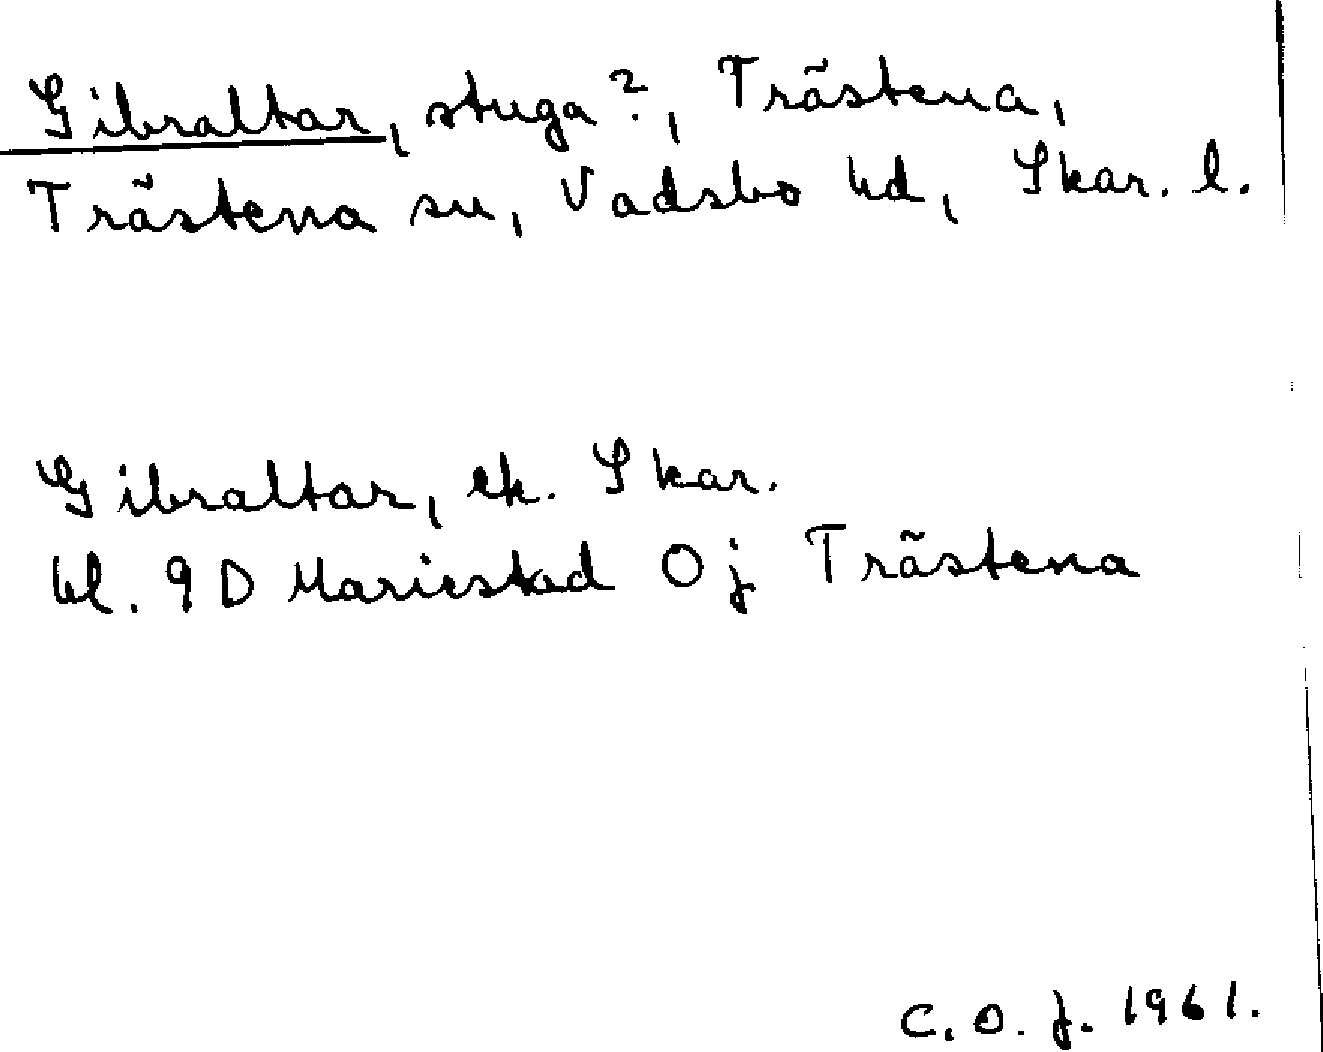 Gibraltar, stuga?, Trästena,
Trästena sn, Vadsbo hd, Skar. l.
Gibraltar, ek. Skar.
bl. 9D Mariestad 0j Trästena
C. O. J. 1961.